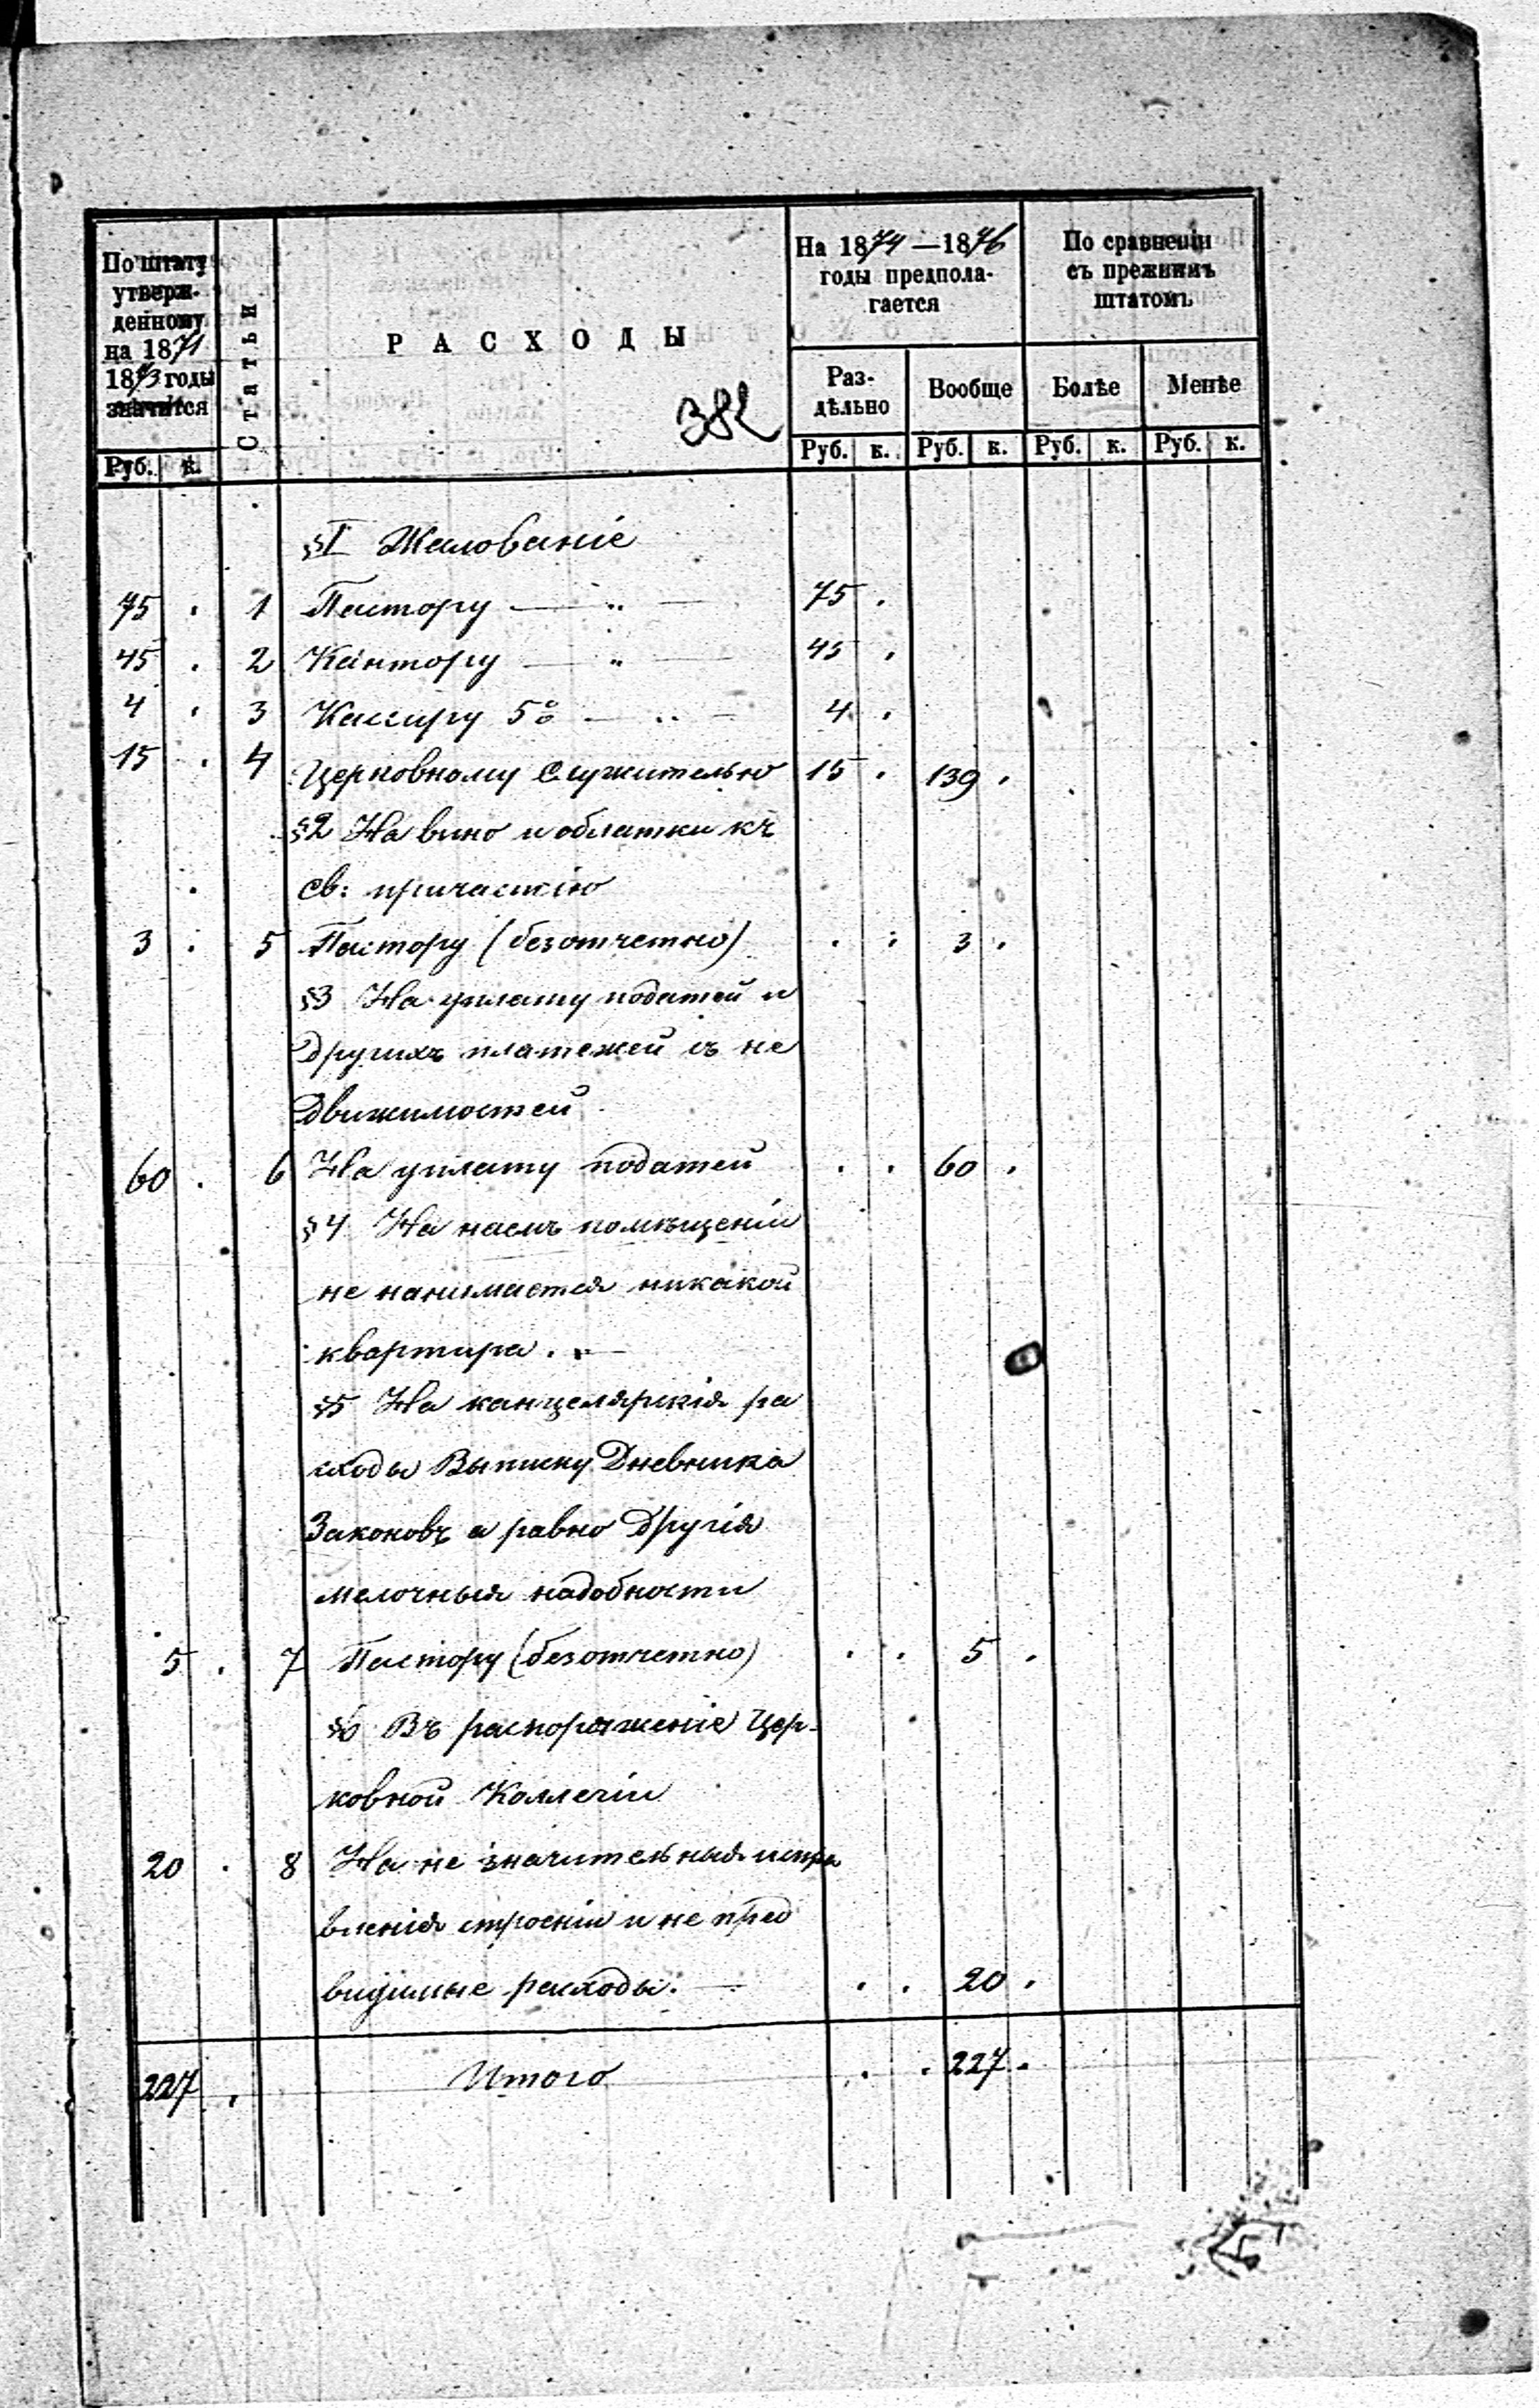 По штату
утверж-
денному
на 1871
1873 годы
значится
Руб. к.
Статьи
РАСХОДЫ
382
На 1874—1876
годы предпола-
гается
Раз-
дѣльно
Вообще
Руб. к. Руб. к.
По сравненіи
съ прежнимъ
штатомъ
Болѣе Менѣе
Руб. к. Руб. к.
§I Жалованіе
75 . 1 Пастору — „ — 75 .
45 . 2 Кантору — „ — 45 .
4 . 3 Кассиру 5% — „ — 4 .
15 . 4 Церковному Служителью 15 . 139 .
§2 На вино и облатки къ
св: причастію
3 . 5 Пастору (безотчетно) . . 3 .
§3 На уплату податей и
другихъ платежей съ не
движимостей
60 . 6 На уплату податей . . 60 .
§4 На наемъ помѣщеніи
не нанимается никакой
квартира . —
§5 На канцелярскія ра
сходы Выписку Дневника
Законовъ а равно Другія
мелочныя надобности
5 . 7 Пастору (безотчетно) . . 5 .
§6 Въ распоряженіе Цер-
ковной Коллегіи
20 . 8 На не значительныя испра
вленія строеніи и не пред
видимые расходы. — . . 20 .
227 . Итого . . 227 .